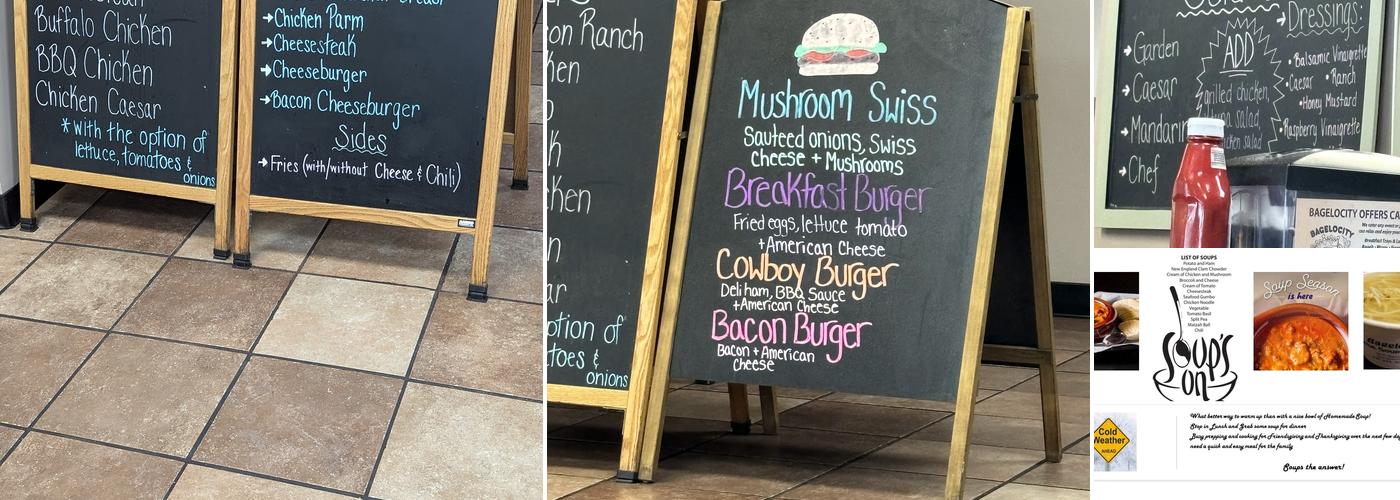 Buffalo Chicken
BBQ Chicken
Chicken Caesar
* with the option of
lettuce, tomatoes &
onions
→ Chicken Parm
→ Cheesesteak
→ Cheeseburger
→ Bacon Cheeseburger
Sides
→ Fries (with/without Cheese & Chili)
on Ranch
ken
ken
ar
ption of
toes &
onions
Mushroom Swiss
Sauteed onions, Swiss
cheese + Mushrooms
Breakfast Burger
Fried eggs, lettuce tomato
+American Cheese
Cowboy Burger
Deli ham, BBQ Sauce
+American Cheese
Bacon Burger
Bacon + American
Cheese
→ Garden
→ Caesar
→ Mandarin
→ Chef
ADD
grilled chicken,
salad
salad
→ Dressings:
• Balsamic Vinaigrette
• Caesar • Ranch
• Honey Mustard
• Raspberry Vinaigrette
BAGELOCITY OFFERS CA
BAGELOCITY
LIST OF SOUPS
Potato and Ham
New England Clam Chowder
Cream of Chicken and Mushroom
Broccoli and Cheese
Cream of Tomato
Cheesesteak
Seafood Gumbo
Chicken Noodle
Vegetable
Tomato Basil
Split Pea
Matzah Ball
Chili
Soup's
on
Soup Season
is here
Cold
Weather
AHEAD
What better way to warm up than with a nice bowl of Homemade Soup!
Stop in Lunch and Grab some soup for dinner
Busy prepping and cooking for Friendsgiving and Thanksgiving over the next few
need a quick and easy meal for the family
Soups the answer!